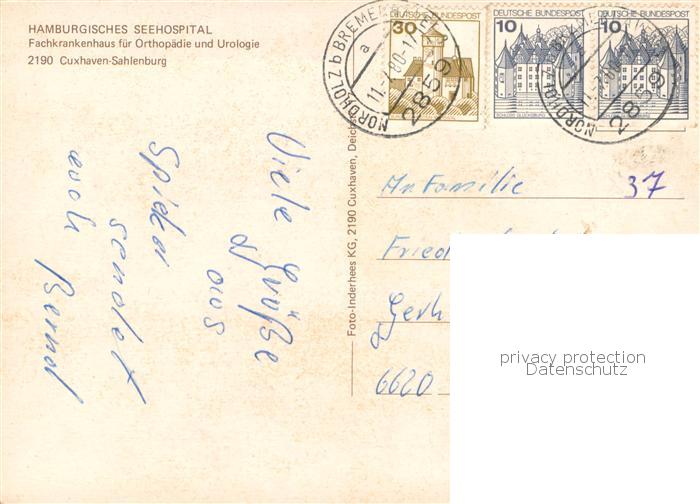 HAMBURGISCHES SEEHOSPITAL
Fachkrankenhaus für Orthopädie und Urologie
2190 Cuxhaven-Sahlenburg
Viele Grüße
aus
Spieka
sendet
euch
Bernd
Foto-Inderhees KG, 2190 Cuxhaven, Deichst
30
DEUTSCHE BUNDESPOST
10
DEUTSCHE BUNDESPOST
SCHLOSS GLÜCKSBURG
10
DEUTSCHE BUNDESPOST
SCHLOSS GLÜCKSBURG
NORDHOLZ b BREMERHAVEN
a
11.-7.80-17
2859
2859
An Familie 37
Gerh
6620
privacy protection
Datenschutz